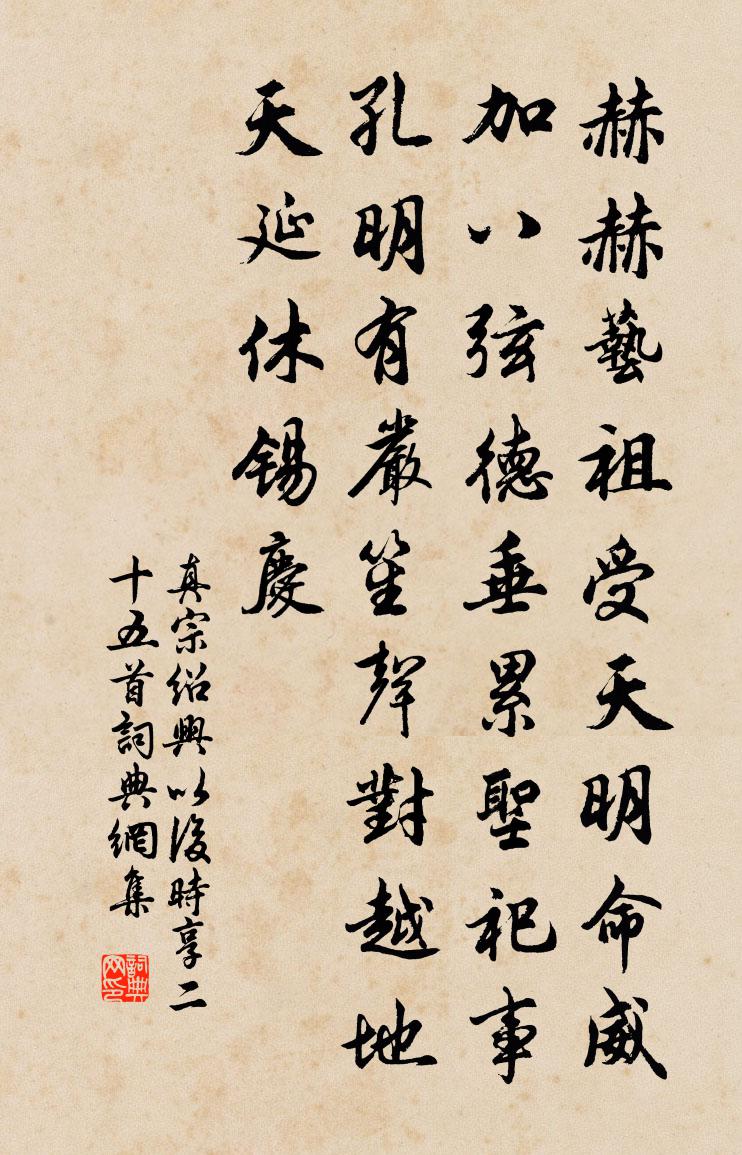 赫赫藝祖受天明命威
加八弦德垂累聖祀事
孔明有嚴笙聲對越地
天延休錫慶
真宗紹興以後時享二
十五首詞典網集
詞典网印